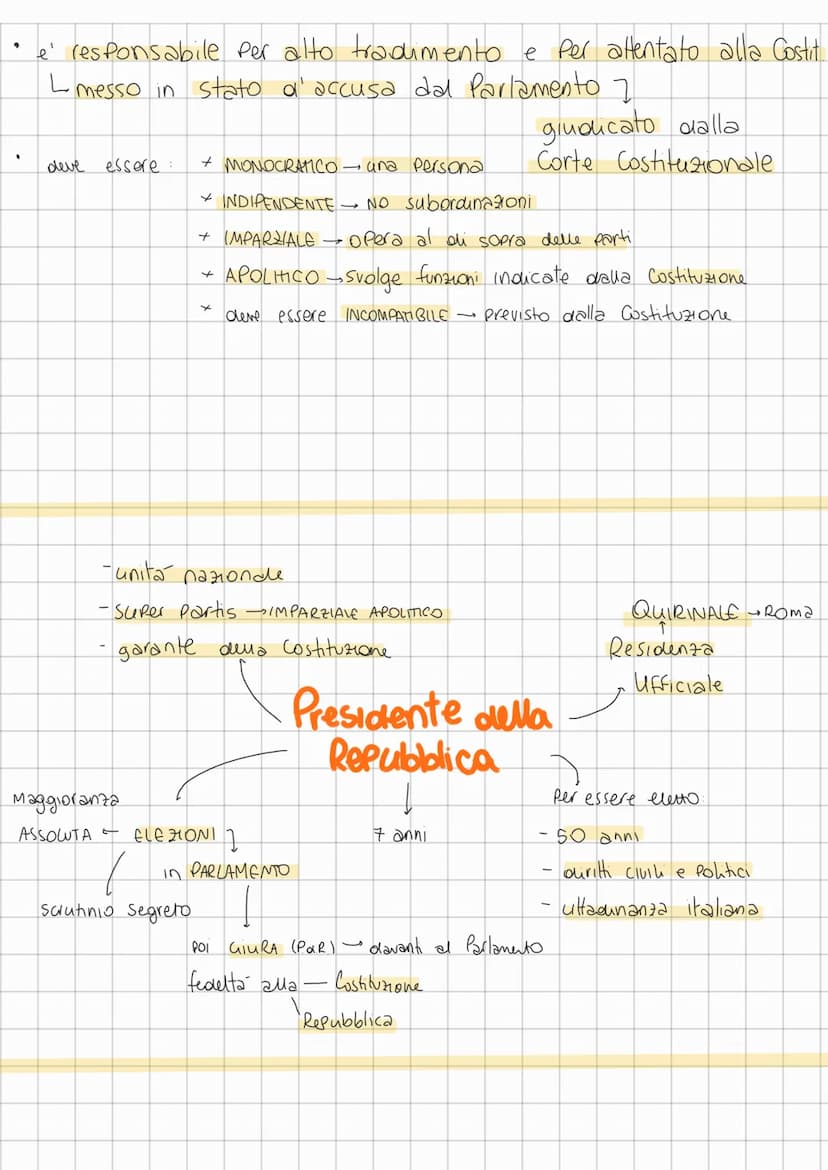 • e' responsabile per alto tradimento e per attentato alla Costit
messo in stato d'accusa dal Parlamento
giudicato dalla
Corte Costituzionale
• deve essere:
+ MONOCRATICO → una persona
+ INDIPENDENTE → NO subordinazioni
+ IMPARZIALE → opera al di sopra delle parti
+ APOLITICO → svolge funzioni indicate dalla Costituzione
+ deve essere INCOMPATIBILE → previsto dalla Costituzione
- unità nazionale
- super partis → IMPARZIALE APOLITICO
- garante della Costituzione
QUIRINALE → Roma
Residenza
Ufficiale
Presidente della
Repubblica
Maggioranza
ASSOLUTA ← ELEZIONI
in PARLAMENTO
scrutinio segreto
poi GIURA (PdR) → davanti al Parlamento
fedeltà alla — Costituzione
Repubblica
7 anni
Per essere eletto:
- 50 anni
- diritti civili e politici
- cittadinanza italiana